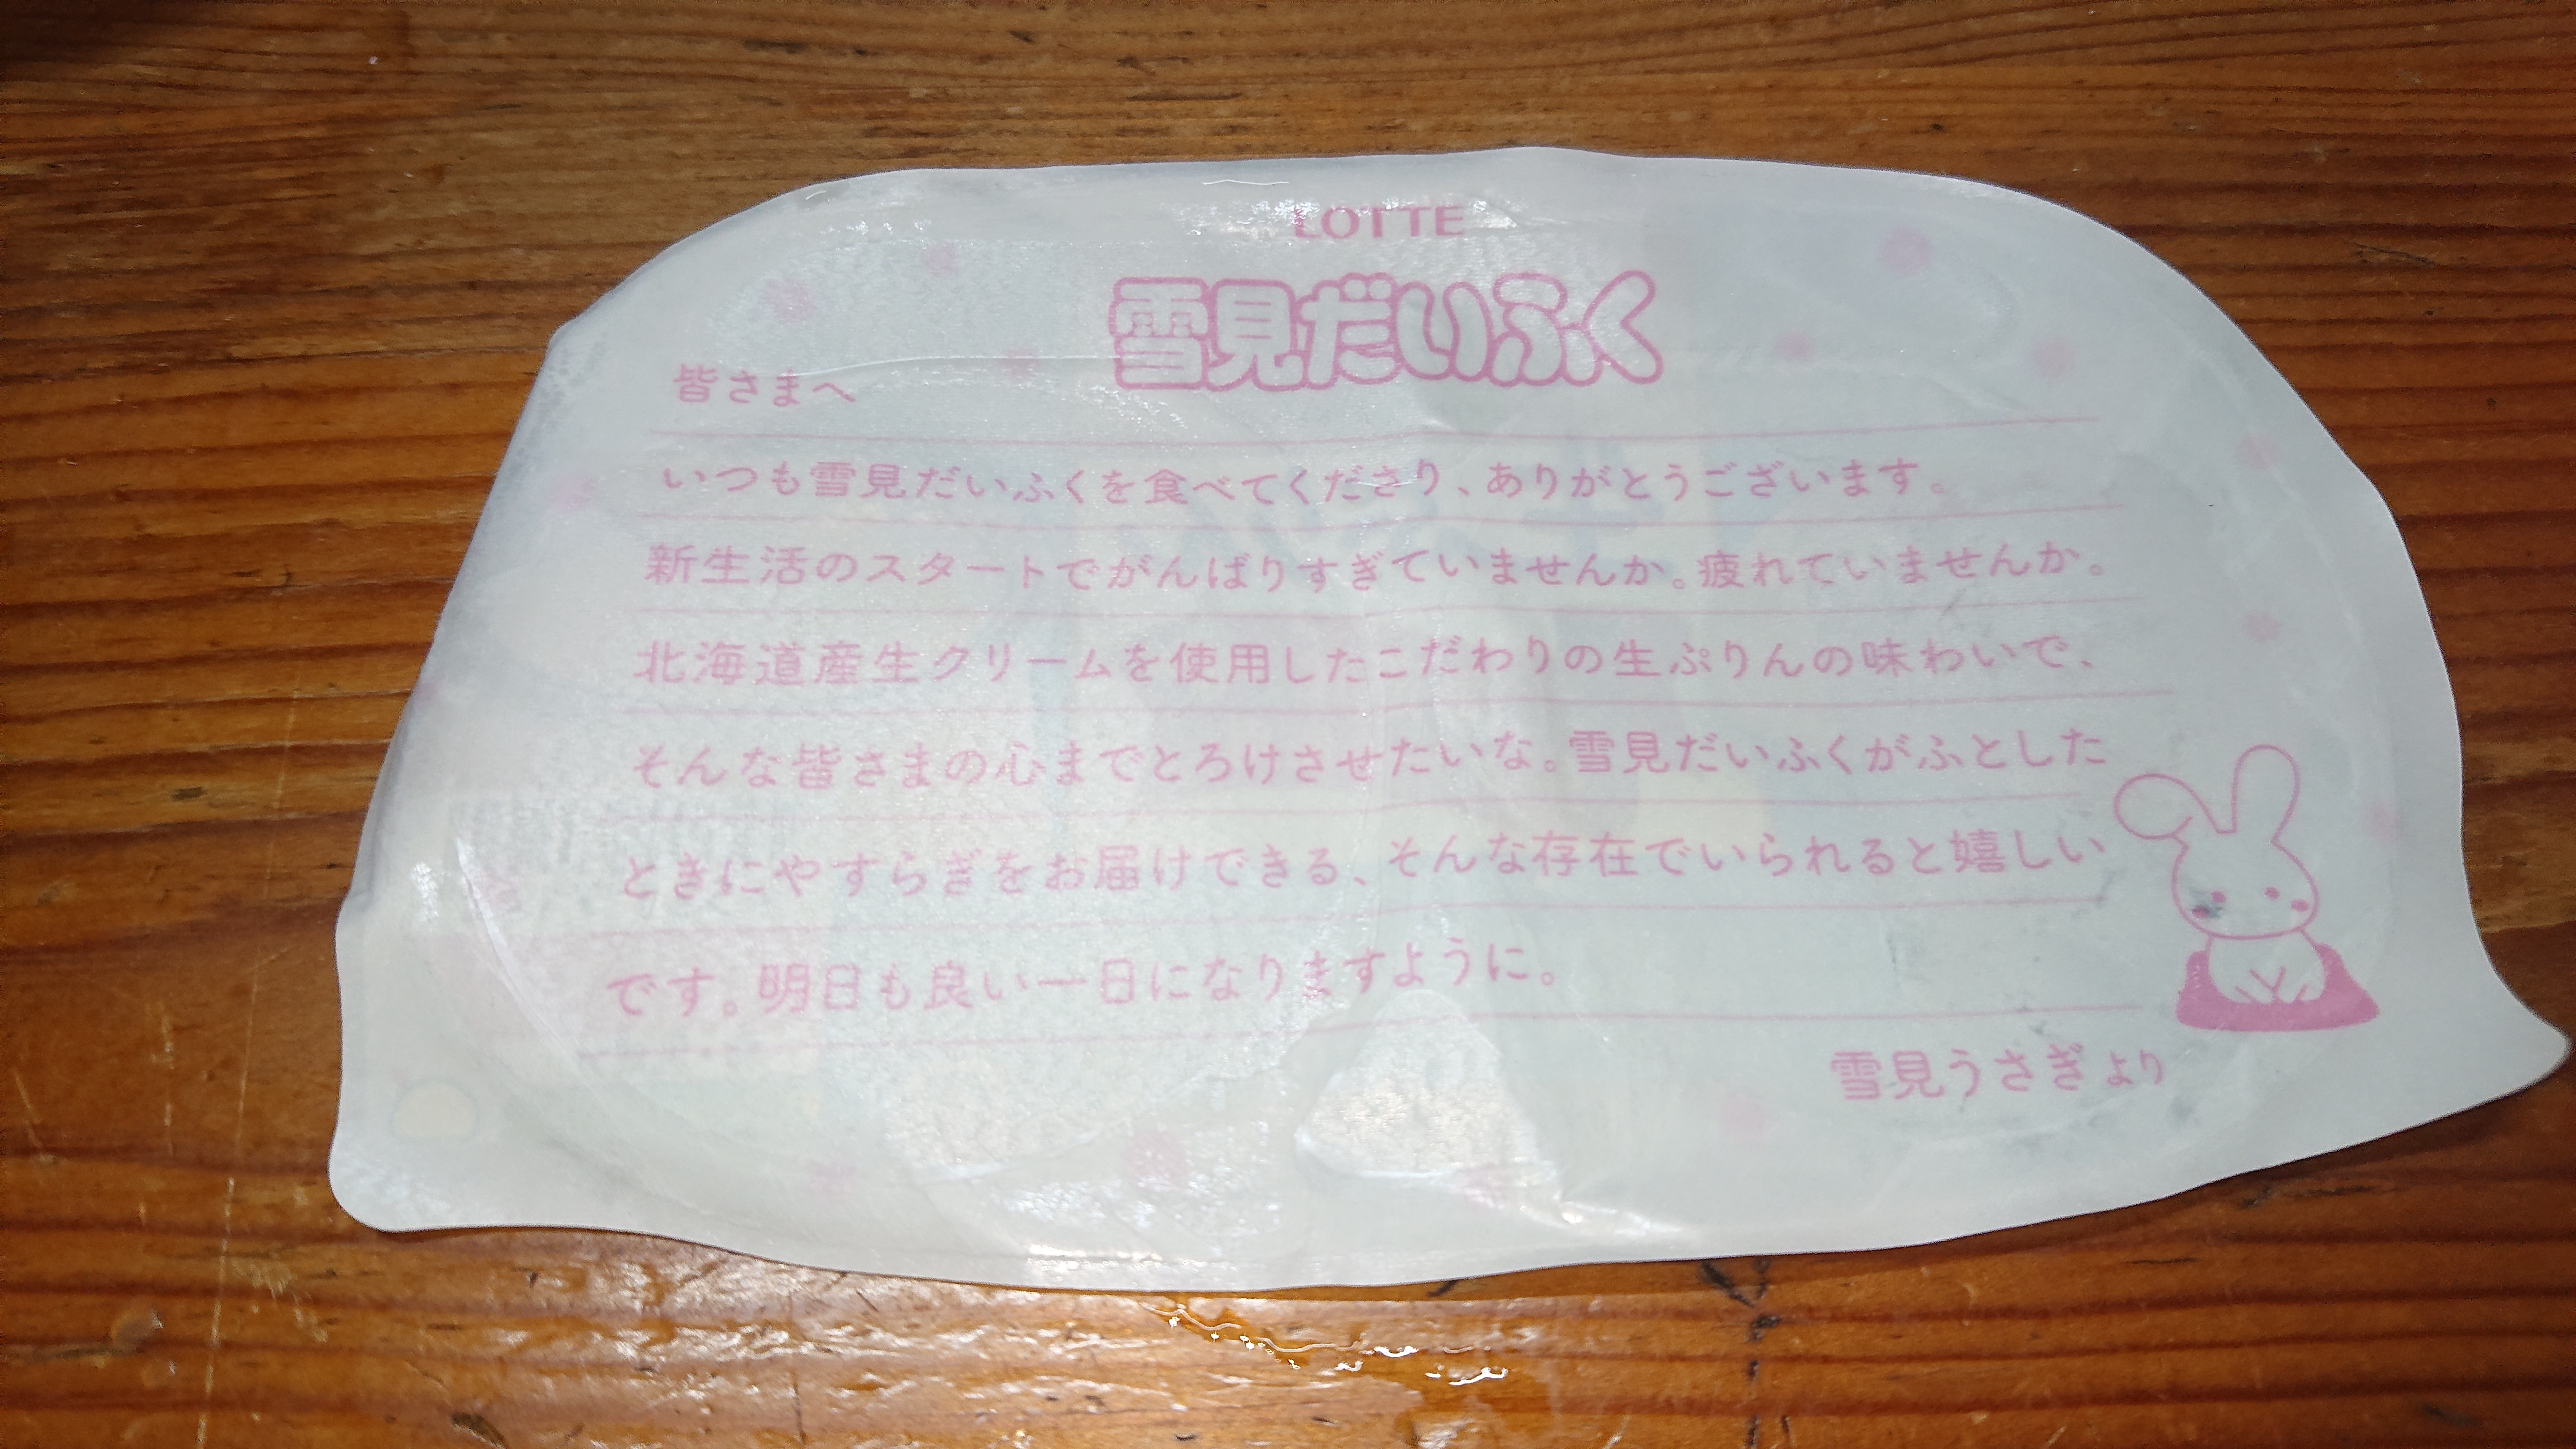 LOTTE
雪見だいふく
皆さまへ
いつも雪見だいふくを食べてくださり、ありがとうございます。
新生活のスタートでがんばりすぎていませんか。疲れていませんか。
北海道産生クリームを使用したこだわりの生ぷりんの味わいで、
そんな皆さまの心までとろけさせたいな。雪見だいふくがふとした
ときにやすらぎをお届けできる、そんな存在でいられると嬉しい
です。明日も良い一日になりますように。
雪見うさぎより